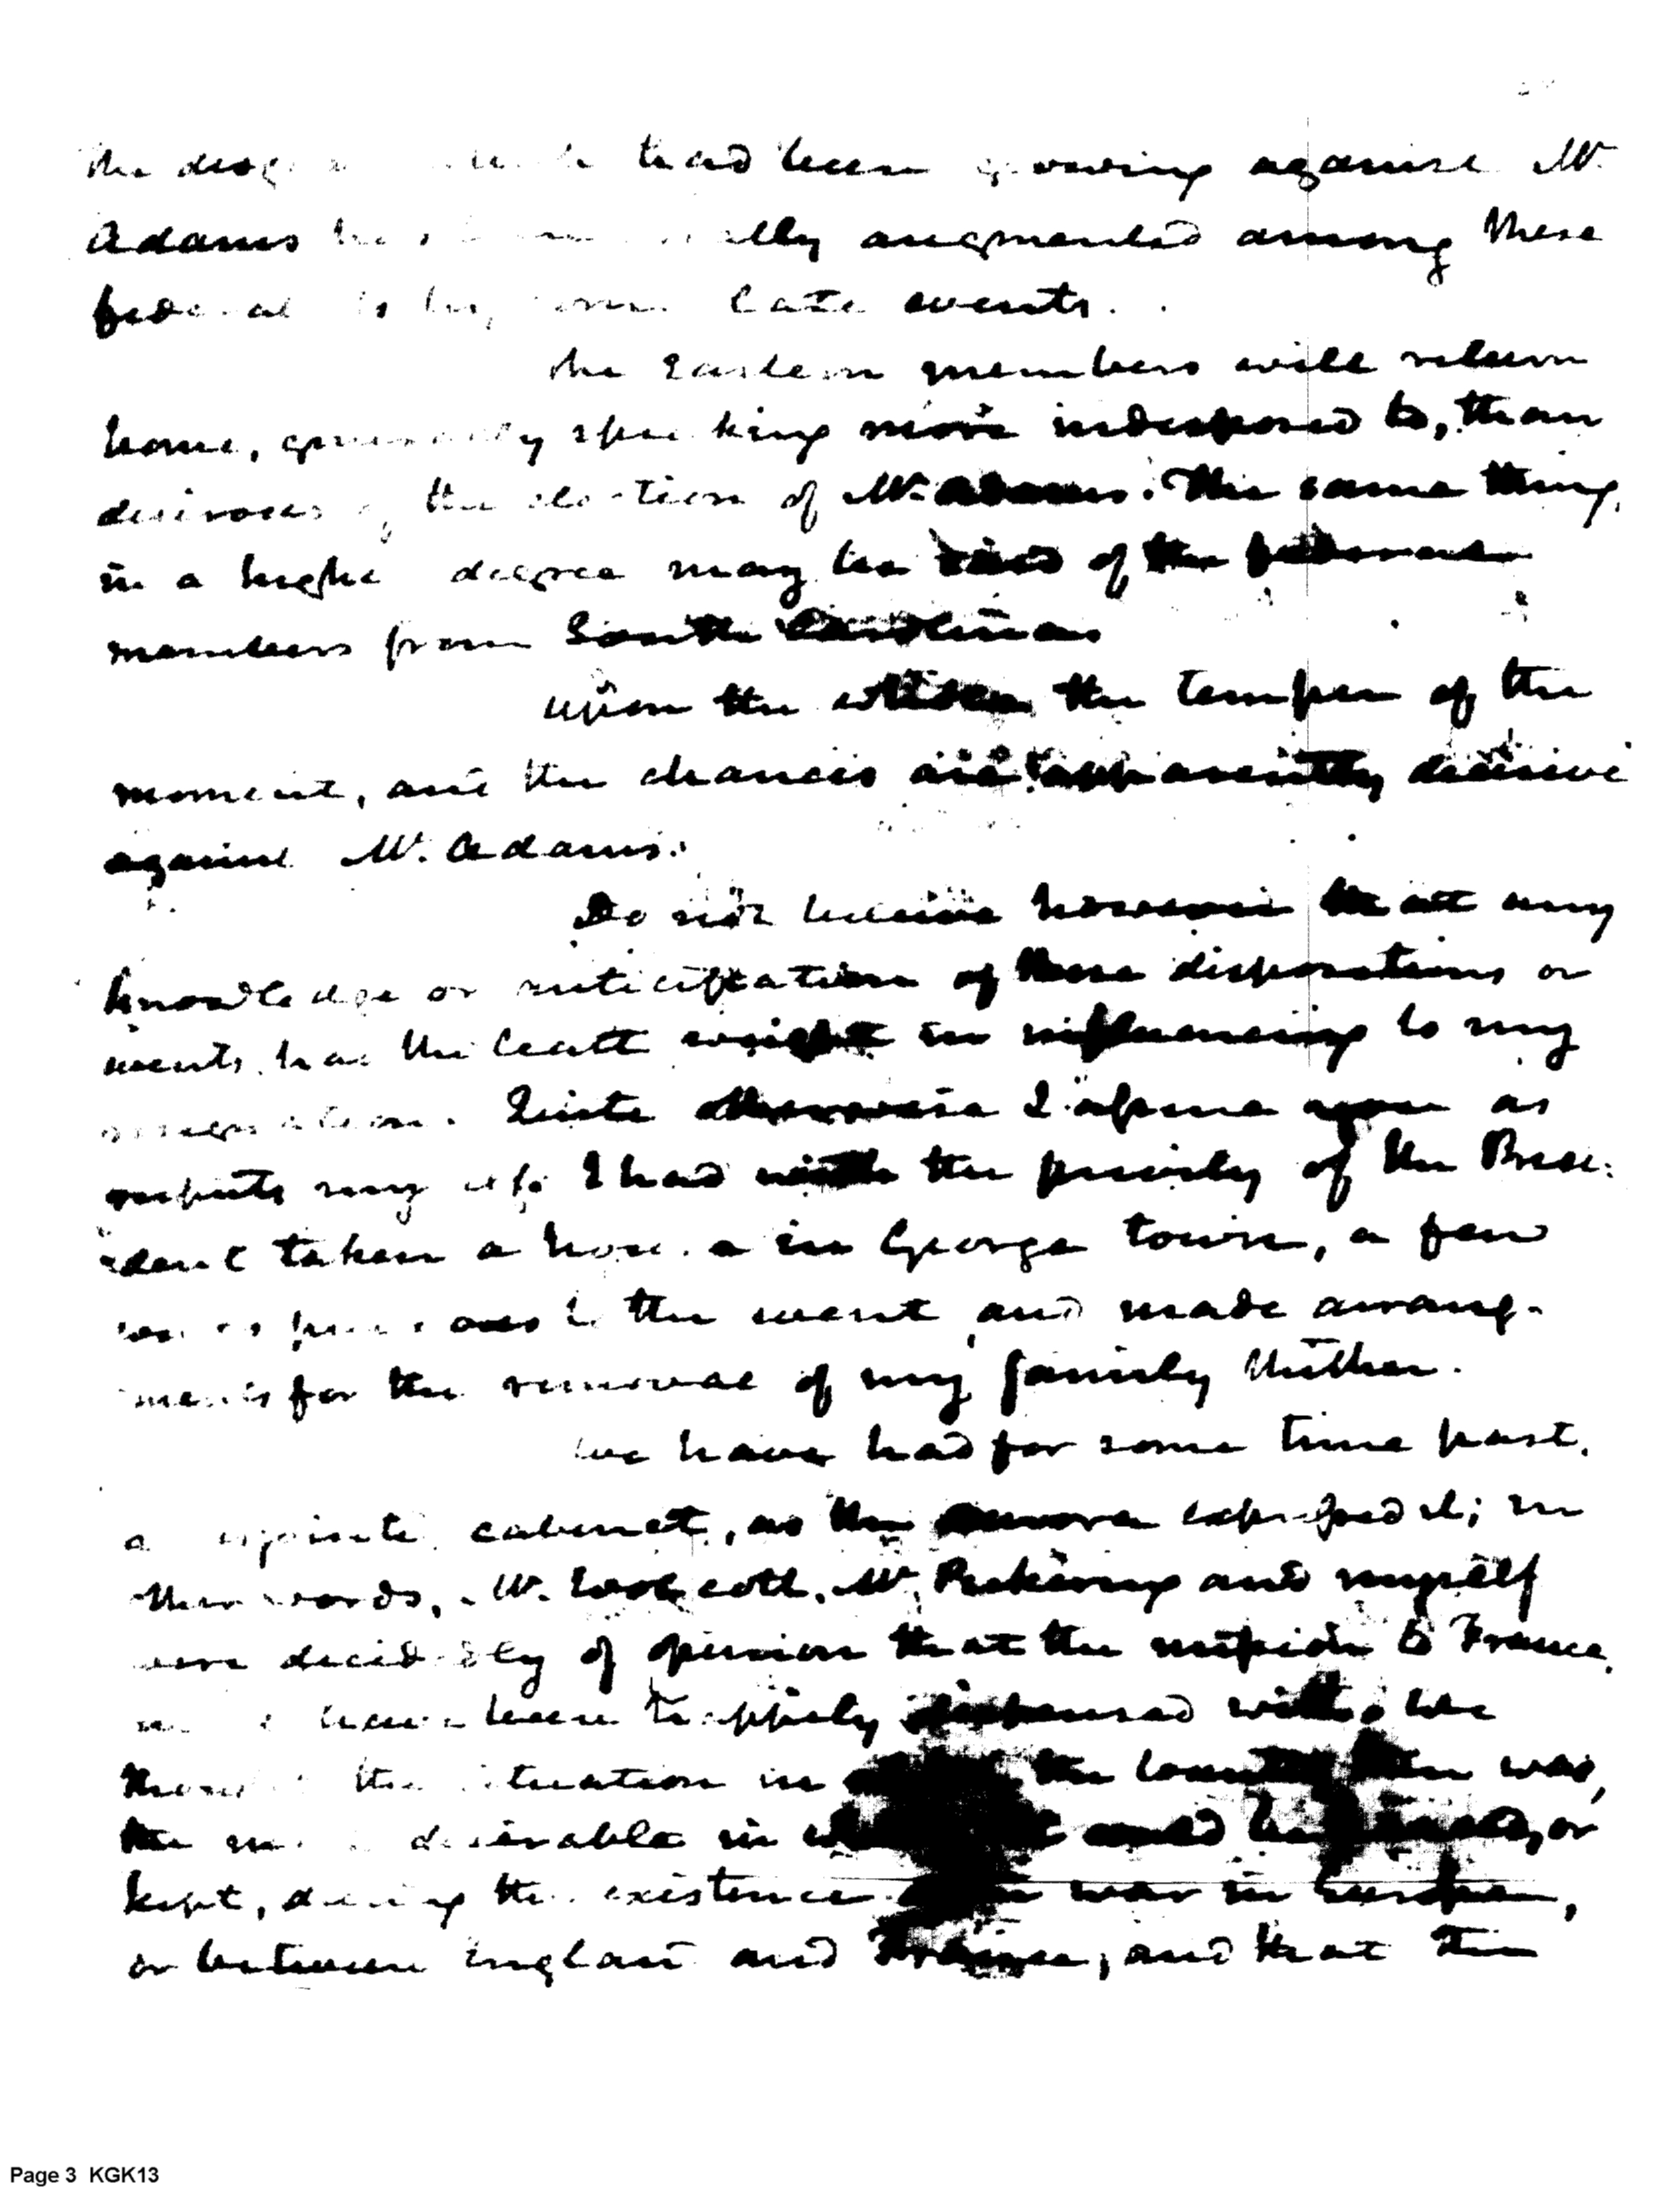 the had been growing against Mr.
Adams augmented among these
by some late events.
The Eastern members will return
home, generally speaking more indisposed to, than
desirous of the election of Mr. Adams. The same thing,
in a higher degree may be said of the federal
members from South Carolina
upon the whole the temper of the
moment, and the chances are apparently decisive
against Mr. Adams.
Do not believe however that any
knowledge or anticipation of these dispositions or
events, had the least weight in influencing to my
resignation. Quite otherwise I assure you as
respects myself. I had with the privity of the Presi-
dent taken a house in George town, a few
previous to the event, and made arrang-
ments for the removal of my family thither.
We have had for some time past,
a cabinet, as the Aurora expressed it; in
other words, Mr. Wolcott, Mr. Pickering and myself
were decidedly of opinion that the mission to France,
have been happily dispensed with. We
thought the situation in the country then was,
the most desirable in could be or
kept, during the existence war in Europe,
or between England and France, and that the
Page 3 KGK13